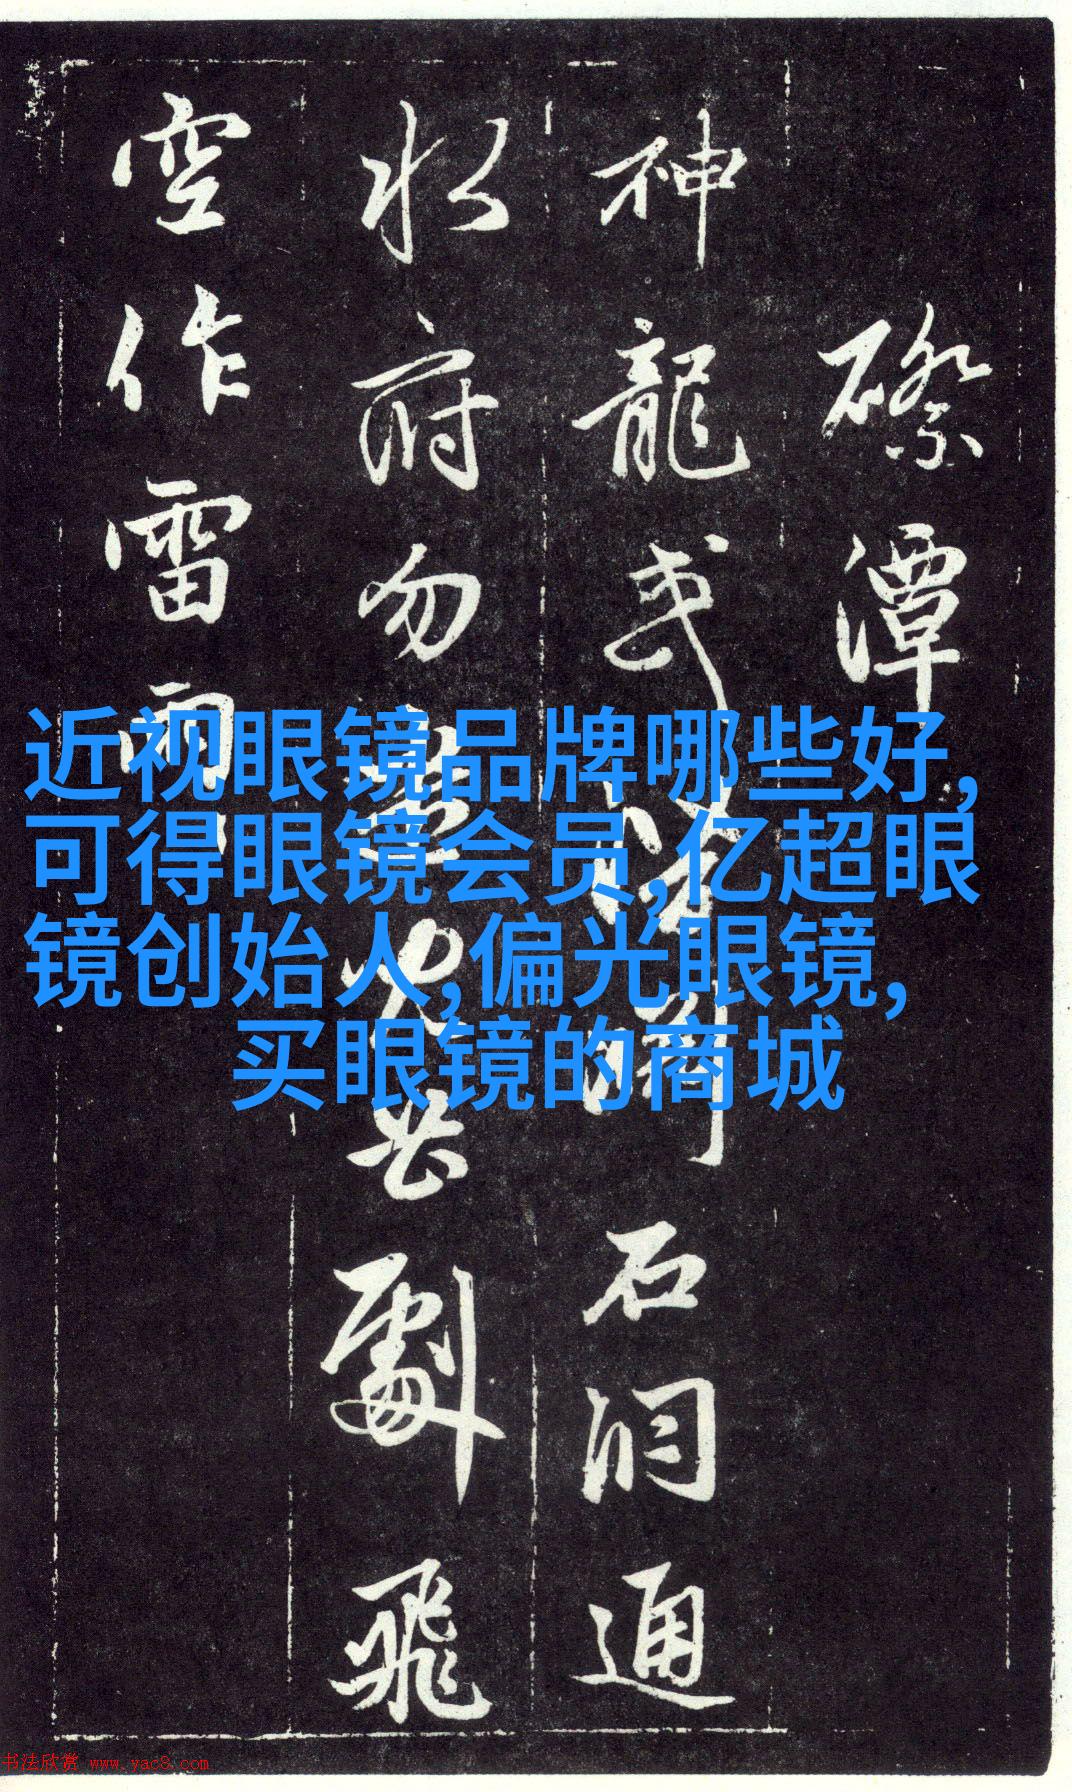 磜潭
神龍或石洞通
水府勿劇飛
空作雷雨
近视眼镜品牌哪些好,
可得眼镜会员,亿超眼
镜创始人,偏光眼镜,
买眼镜的商城
书法欣赏 www.yac8.com